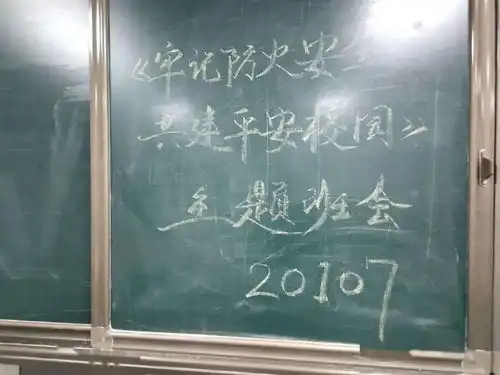 《牢记防火安全
共建平安校园》
主题班会
20107